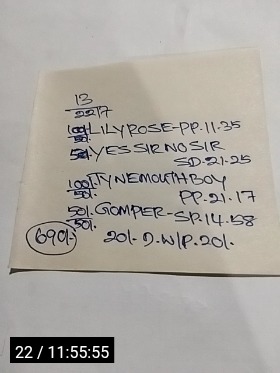 13
2217
100/- LILYROSE-PP.11.35
50/-
50/- YES SIR NO SIR
SD.21.25
100/- TYNEMOUTH BOY
50/- PP.21.17
50/- GOMPER-SP.14.58
50/-
690/- 20/- D.W/P.20/-
22 / 11:55:55